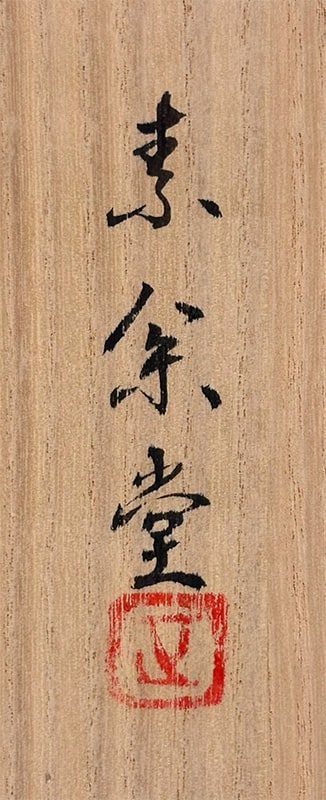 素余堂